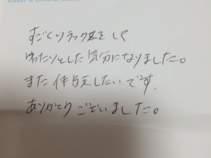 すごくリラックスをして
ゆったりとした気分になりました。
また体験したいです。
ありがとうございました。